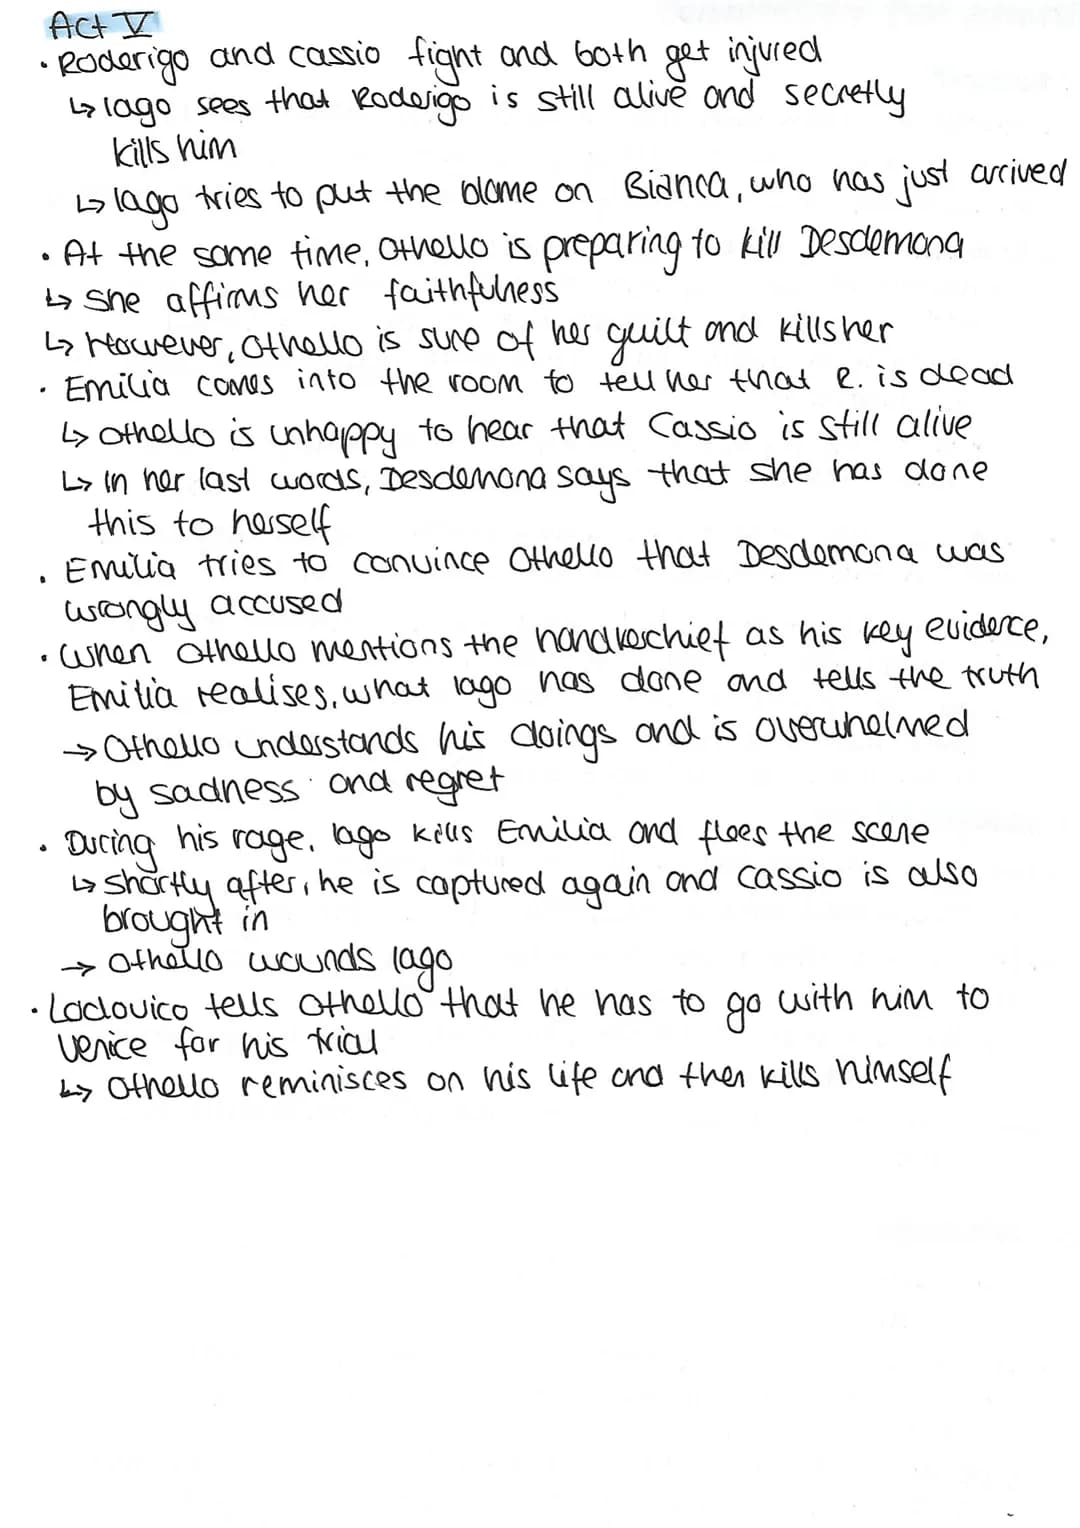 Act V
· Roderigo and cassio fight and both get injured
↳ Iago sees that Roderigo is still alive and secretly
kills him
↳ Iago tries to put the blame on Bianca, who has just arrived
· At the same time, Othello is preparing to kill Desdemona
↳ She affirms her faithfulness
↳ However, Othello is sure of her guilt and kills her
· Emilia comes into the room to tell her that R. is dead
↳ Othello is unhappy to hear that Cassio is still alive
↳ In her last words, Desdemona says that she has done
this to herself
· Emilia tries to convince Othello that Desdemona was
wrongly accused
· When Othello mentions the handkerchief as his key evidence,
Emilia realises, what Iago has done and tells the truth
→ Othello understands his doings and is overwhelmed
by sadness and regret
· During his rage, Iago kills Emilia and flees the scene
↳ Shortly after, he is captured again and Cassio is also
brought in
→ Othello wounds Iago
· Lodovico tells Othello that he has to go with him to
Venice for his trial
↳ Othello reminisces on his life and then kills himself